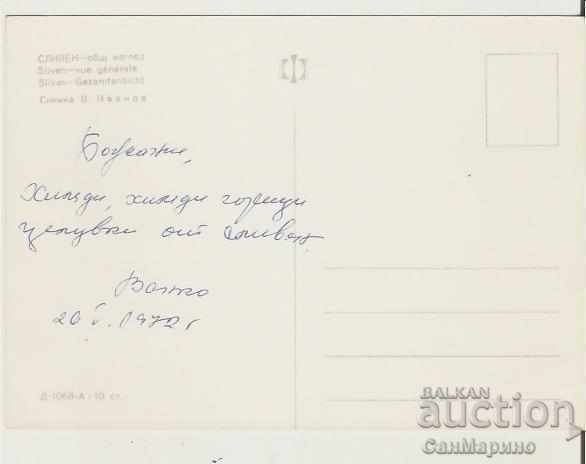 СЛИВЕН—общ изглед
Sliven—vue générale
Sliven—Gesamtansicht
Снимка В. Иванов
хиляди, хиляди горещи
целувки от Сливен
Ванко
20 V. 1972 г
Д-1068-А / 10 ст.
BALKAN
auction
СанМарино